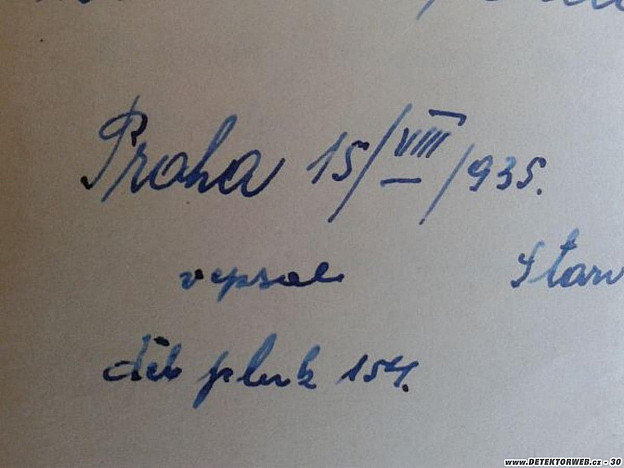 Praha 15/VIII/935.
vepsal Star
děl pluk 154.
www.DETEKTORWEB.cz - 30